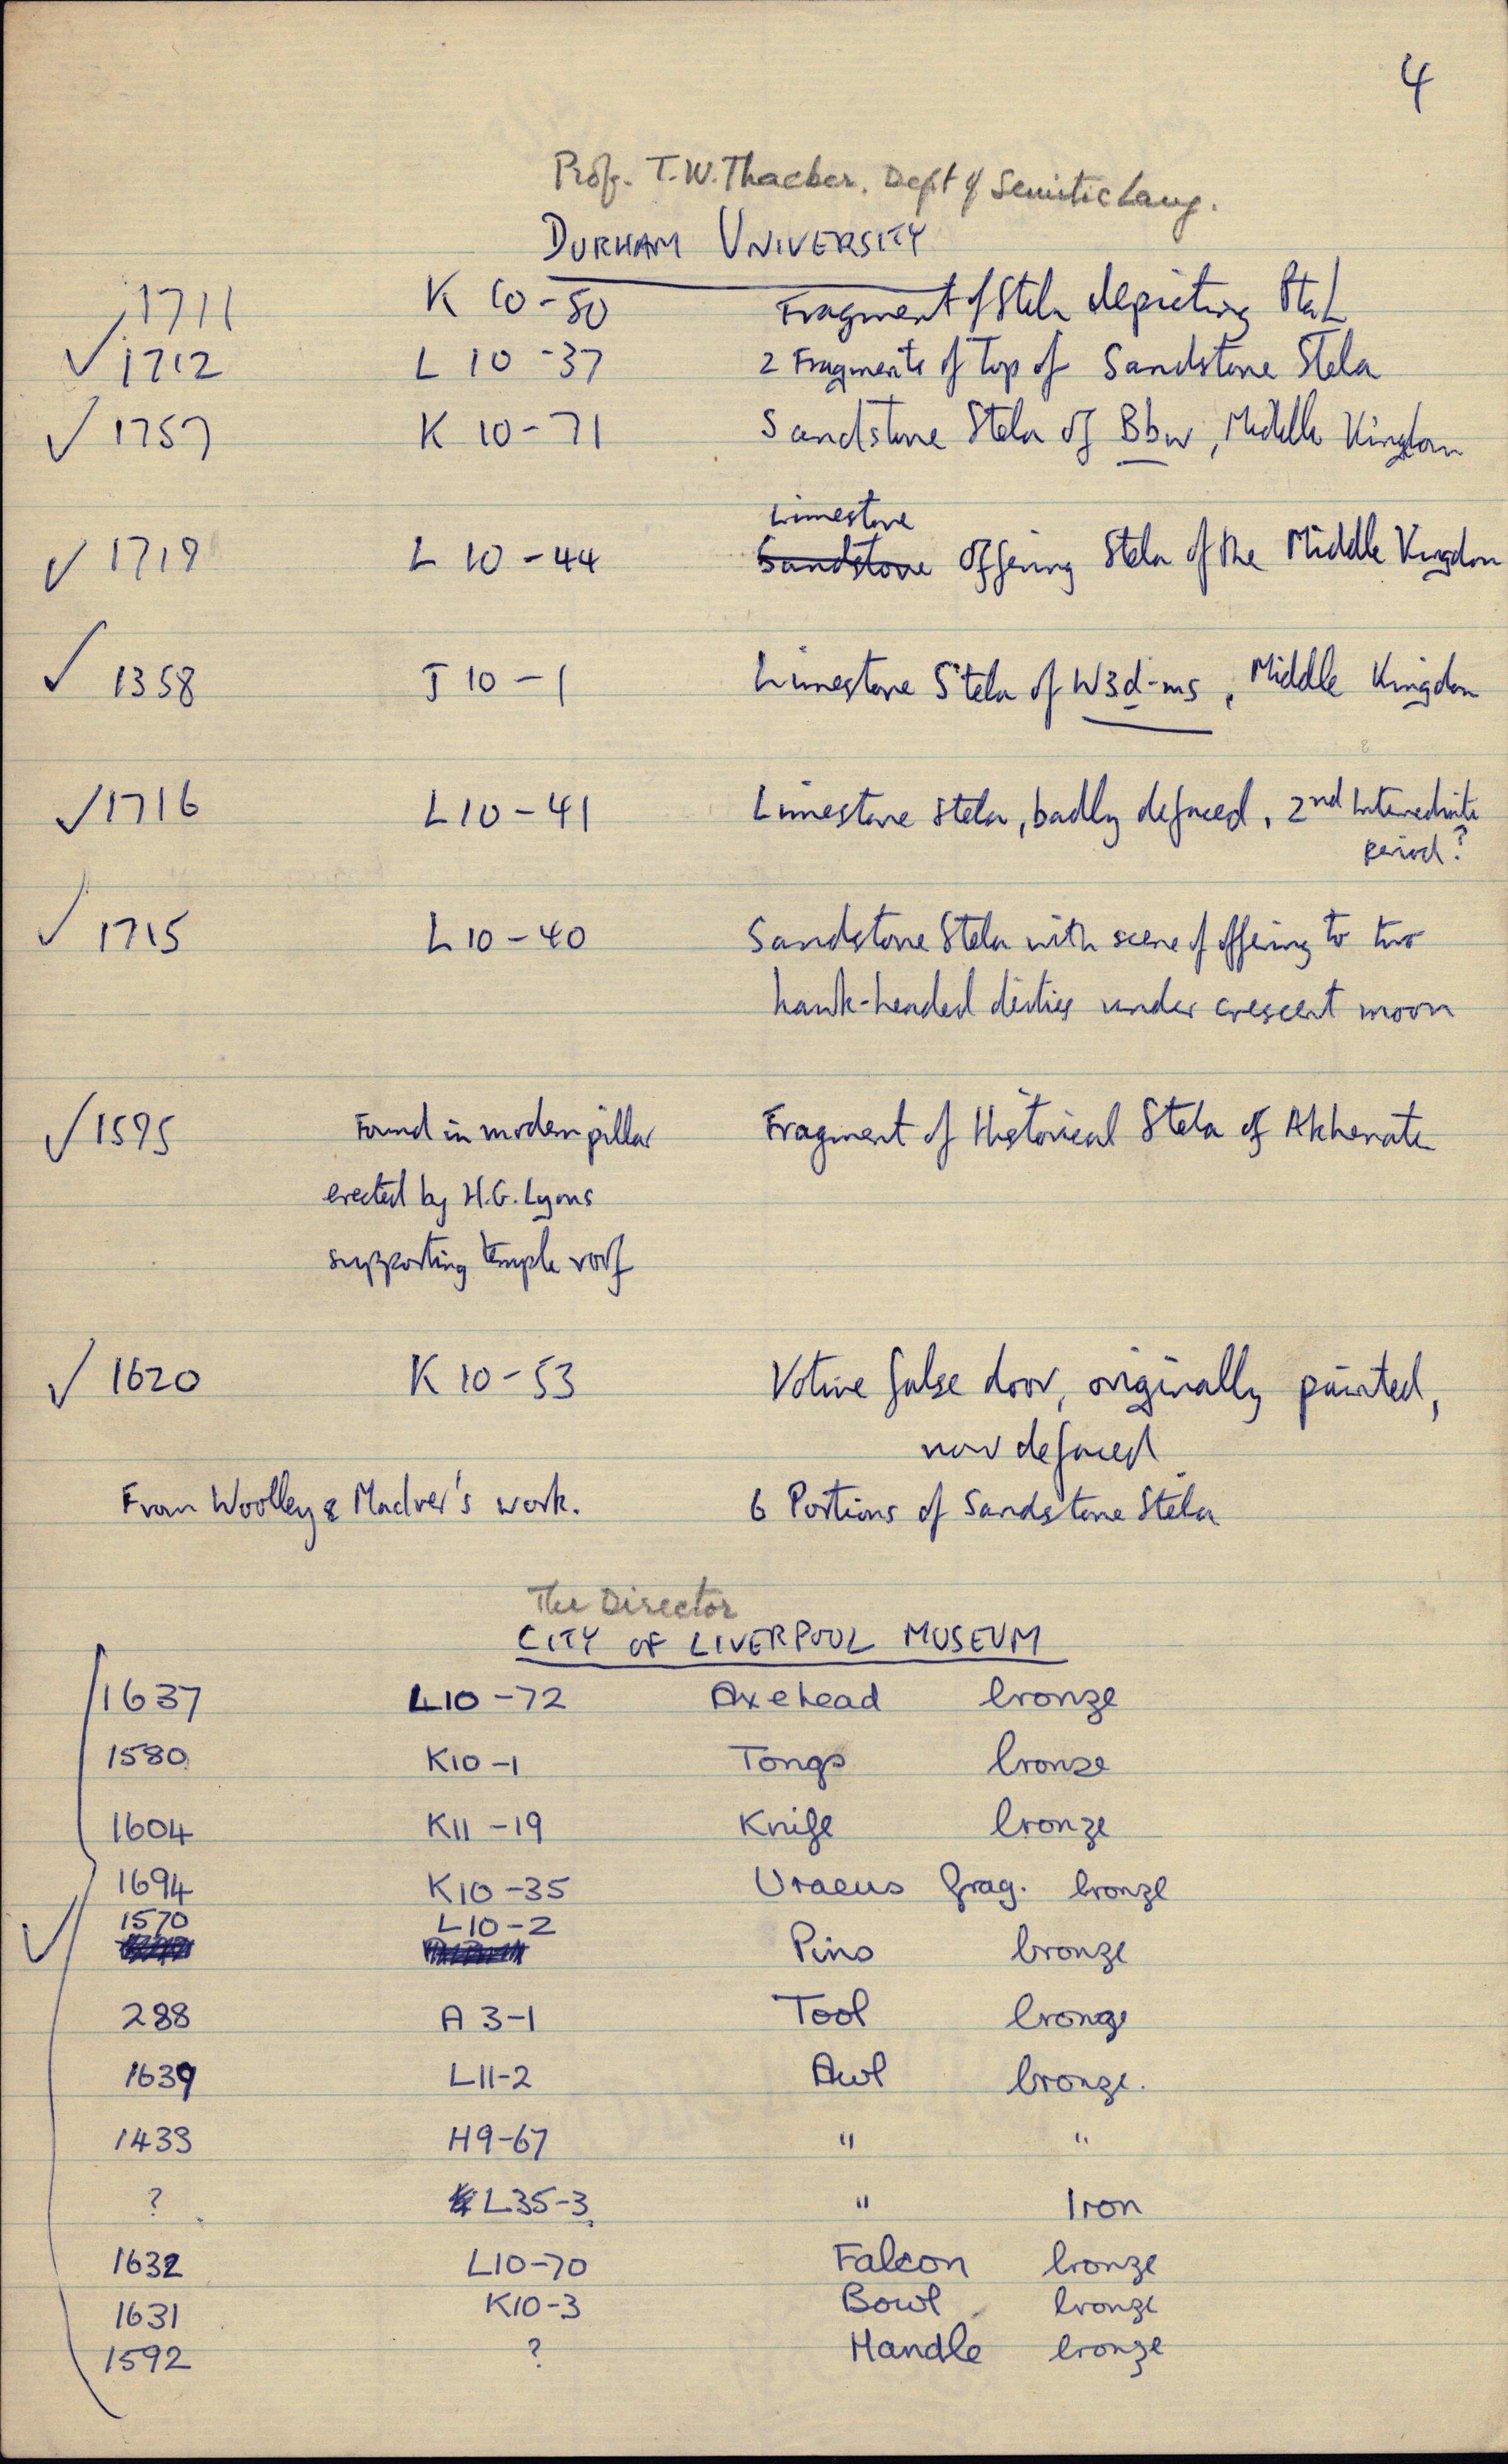 4
Prof. T.W. Thacker. Dept of Semitic Lang.
DURHAM UNIVERSITY
1711 K 10-50 Fragment of Stela depicting Ptah
✓ 1712 L 10-37 2 Fragments of top of Sandstone Stela
✓ 1757 K 10-71 Sandstone Stela of Bbw, Middle Kingdom
Limestone
✓ 1719 L 10-44 Sandstone Offering Stela of the Middle Kingdom
✓ 1358 J 10-1 Limestone Stela of W3d-ms, Middle Kingdom
✓ 1716 L10-41 Limestone stela, badly defaced, 2nd Intermediate
period?
✓ 1715 L10-40 Sandstone Stela with scene of offering to two
hawk-headed dieties under crescent moon
✓ 1595 Found in modern pillar Fragment of Historical Stela of Akhenaten
erected by H.G. Lyons
supporting temple roof
✓ 1620 K 10-53 Votive false door, originally painted,
now defaced
From Woolley & MacIver's work. 6 Portions of Sandstone Stela
The Director
CITY OF LIVERPOOL MUSEUM
1637 L10-72 Axehead bronze
1580 K10-1 Tongs bronze
1604 K11-19 Knife bronze
1694 K10-35 Uraeus frag. bronze
✓ 1570 L10-2
Pins bronze
288 A 3-1 Tool bronze
1639 L11-2 Awl bronze.
1433 H9-67 " "
? L35-3 " Iron
1632 L10-70 Falcon bronze
1631 K10-3 Bowl bronze
1592 ? Handle bronze